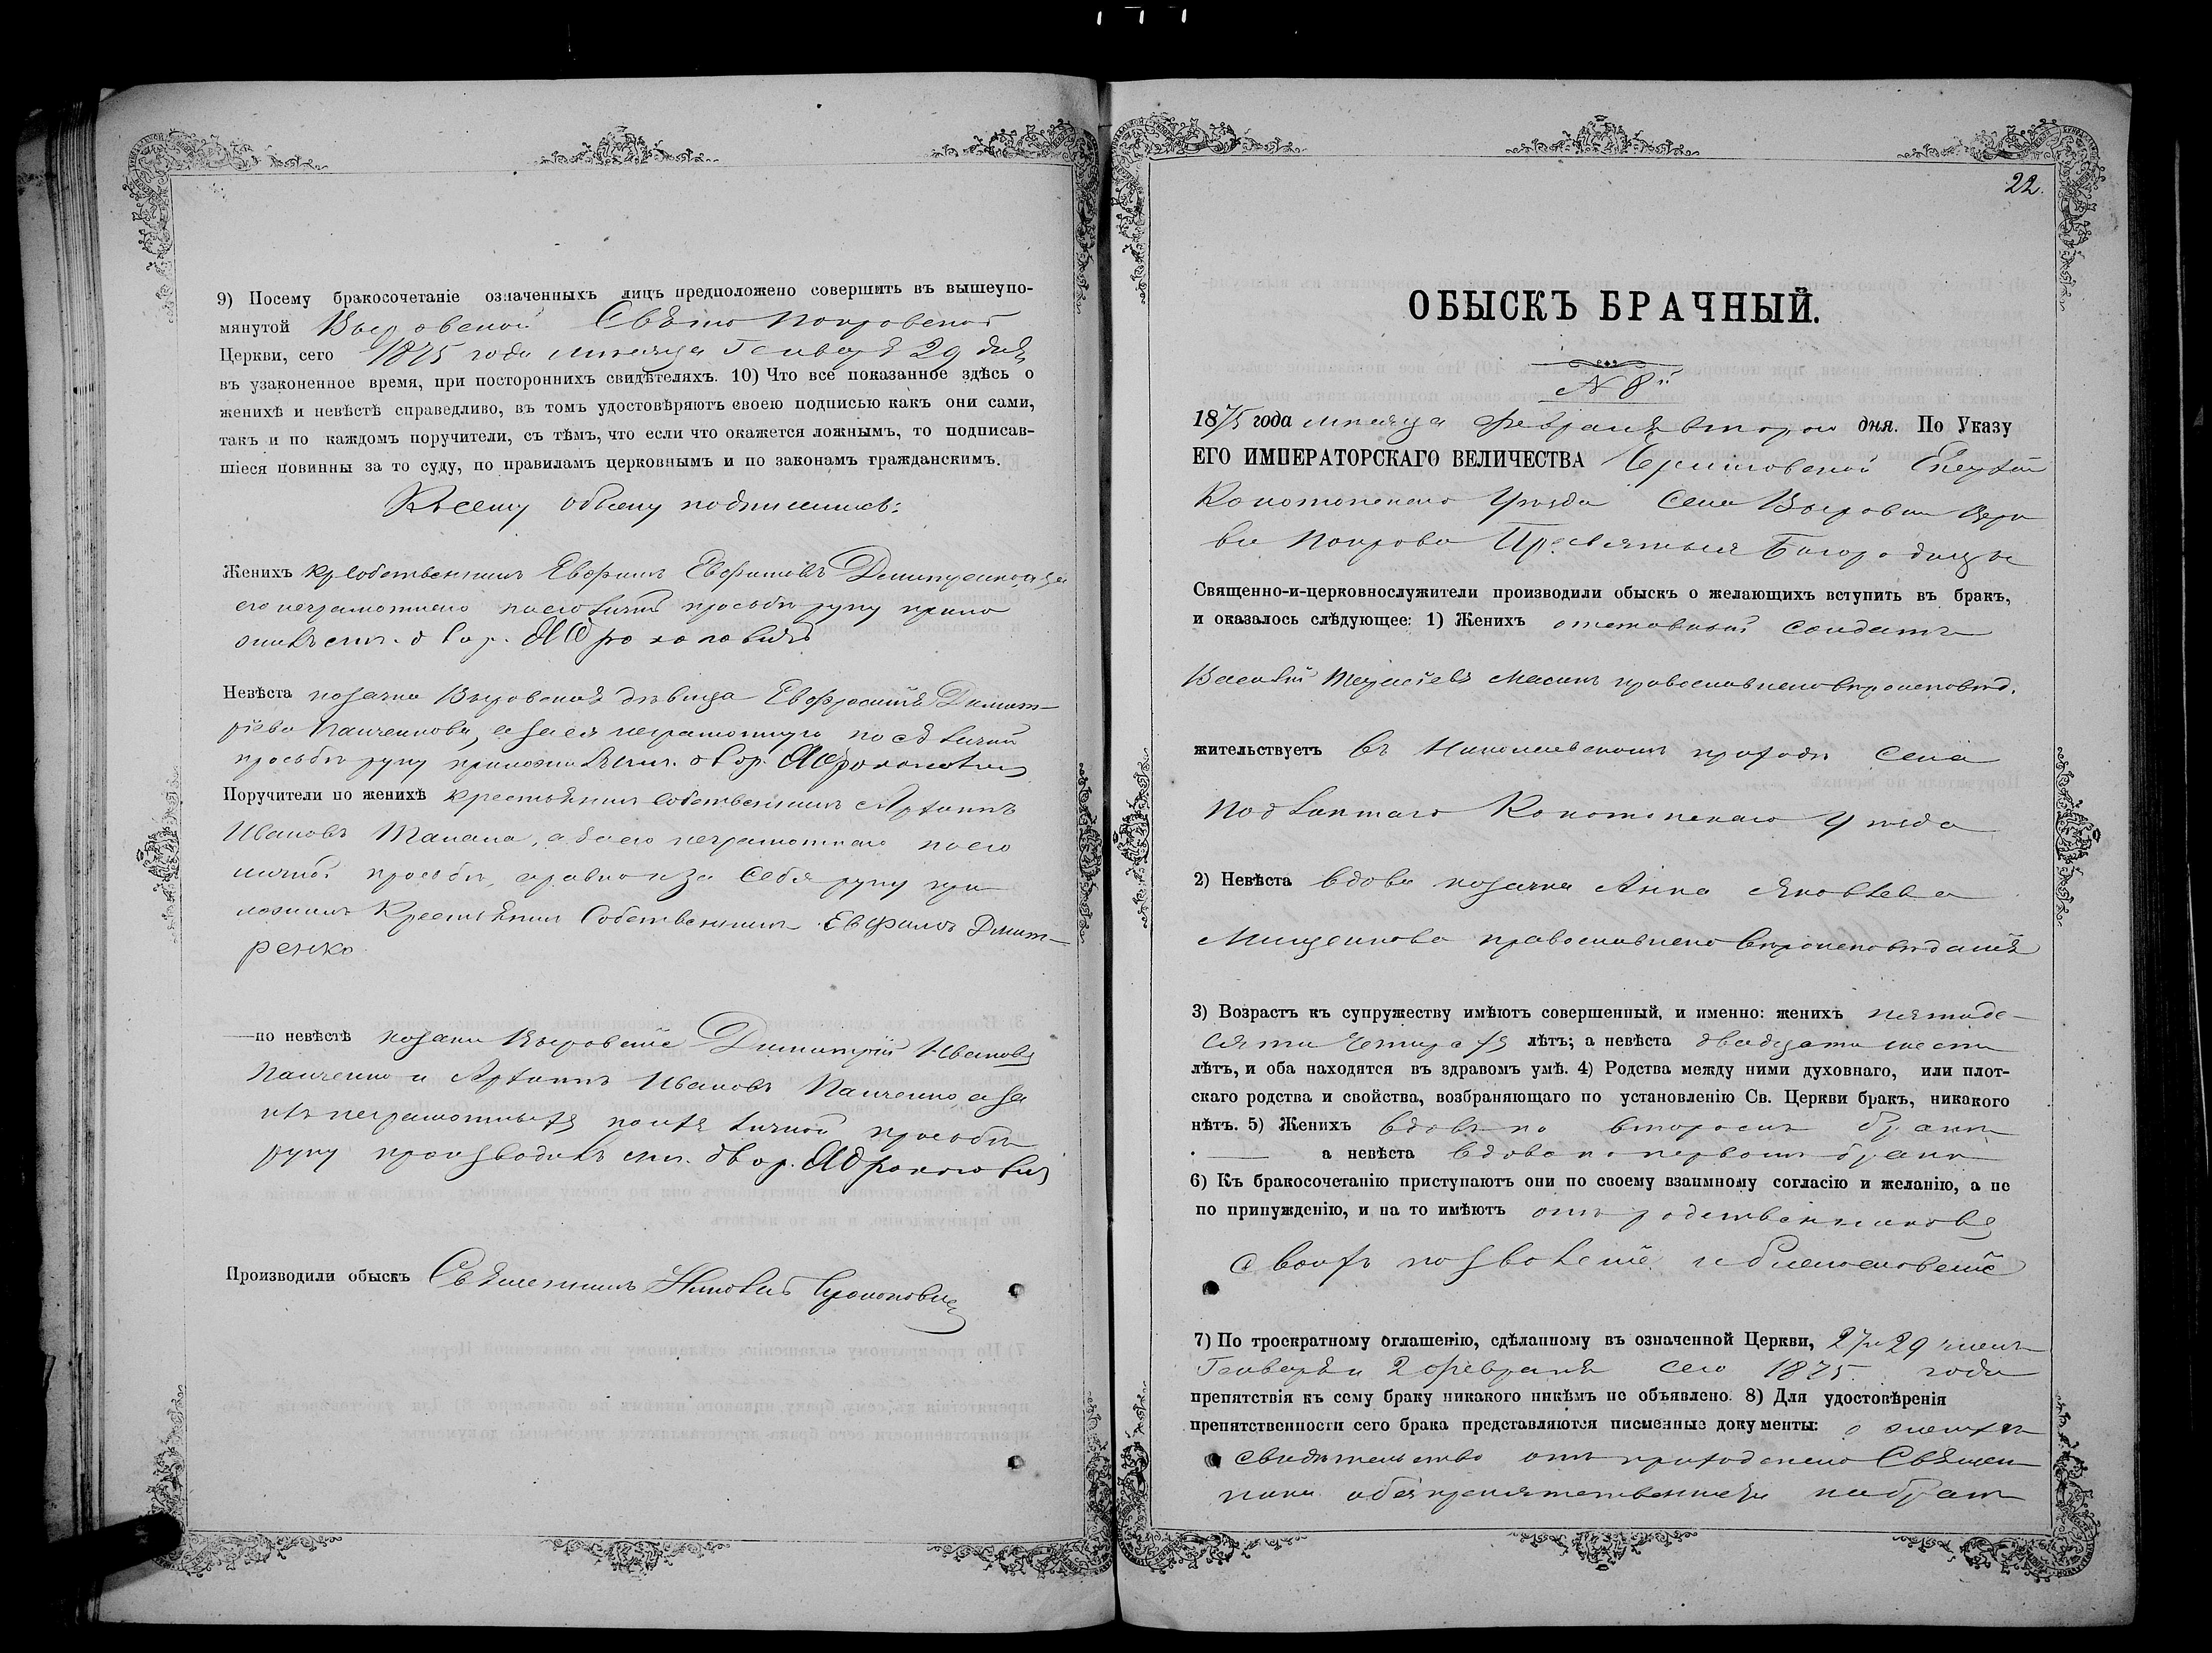 9) Посему бракосочетаніе означенныхъ лицъ предположено совершить въ вышеупо-
мянутой Выровской Свято Покровской
Церкви, сего 1875 года месяца Генваря 29 дня
въ узаконенное время, при постороннихъ свидѣтеляхъ. 10) Что все показанное здѣсь о
женихѣ и невѣстѣ справедливо, въ томъ удостовѣряютъ своею подписью какъ они сами,
такъ и по каждомъ поручители, съ тѣмъ, что если что окажется ложнымъ, то подписав-
шіеся повинны за то суду, по правиламъ церковнымъ и по законамъ гражданскимъ.
Къ сему обыску подписились:
Женихъ кр собственникъ Евфимъ Евфимовъ Димитренко а за
его неграмотнаго по его личной прозьбѣ руку прило
жилъ
Невѣста козачка Выровская дѣвица Евфросинія Димит-
ріева Панченкова, а за ея неграмотную по ея личной
прозьбѣ руку приложилъ
Поручители по женихѣ крестьянинъ собственникъ Архипъ
Ивановъ а за его неграмотнаго по его
личной прозьбѣ, а равно и за себя руку при
ложилъ Крестьянинъ Собственникъ Евфимъ Димит-
ренко
—по невѣстѣ козаки Выровскіе Димитрій Ивановъ
Панченко и Архипъ Ивановъ Панченко а за
ихъ неграмотныхъ по ихъ личной прозьбѣ
руку производилъ
Производили обыскъ Священникъ
22.
ОБЫСКЪ БРАЧНЫЙ.
N 8й
1875 года месяца Февраля второго дня. По Указу
ЕГО ИМПЕРАТОРСКАГО ВЕЛИЧЕСТВА Черниговской Епархіи
Конотопскаго Уѣзда Села Выровки Церк
ви Покрова Пресвятыя Богородицы
Священно-и-церковнослужители производили обыскъ о желающихъ вступить въ бракъ,
и оказалось слѣдующее: 1) Женихъ отставный солдатъ
Василій православнаго вѣроисповѣд.
жительствуетъ въ Николаевскомъ приходѣ Села
Подлипнаго Конотопскаго Уѣзда
2) Невѣста вдова козачка Анна Яковлева
Мищенкова православнаго вѣроисповѣданія
3) Возрастъ къ супружеству имѣютъ совершенный, и именно: женихъ пятиде-
сяти четырехъ лѣтъ; а невѣста двадцати шести
лѣтъ, и оба находятся въ здравомъ умѣ. 4) Родства между ними духовнаго, или плот-
скаго родства и свойства, возбраняющаго по установленію Св. Церкви бракъ, никакого
нѣтъ. 5) Женихъ вдовъ по второмъ бракѣ
а невѣста вдова по первомъ бракѣ
6) Къ бракосочетанію приступаютъ они по своему взаимному согласію и желанію, а не
по принужденію, и на то имѣютъ отъ родственниковъ
своихъ позволеніе и благословеніе
7) По троекратному оглашенію, сдѣланному въ означенной Церкви, 27 и 29 чисел
Генваря и 2 февраля сего 1875 года
препятствія къ сему браку никакого никѣмъ не объявлено. 8) Для удостовѣренія
препятственности сего брака представляются писменные документы: о женихѣ
свидѣтельство отъ приходскаго Священ
ника о безпрепятственности на бракъ